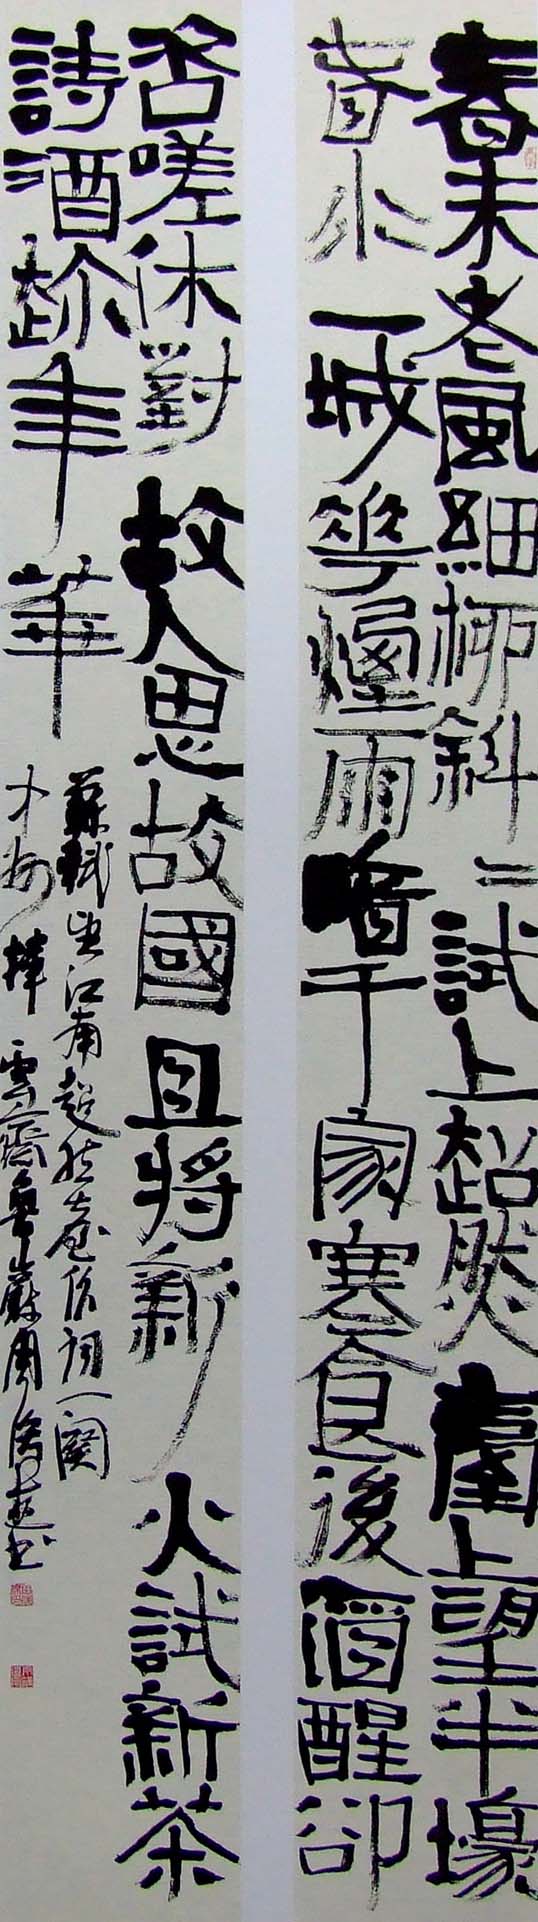 春未老風細柳斜〻試上超然臺上望半壕
春水一城花煙雨暗千家寒食後酒醒卻
咨嗟休對故人思故國且將新火試新茶
詩酒趂年華
蘇軾望江南超然臺作詞一闋
中州雲齋書